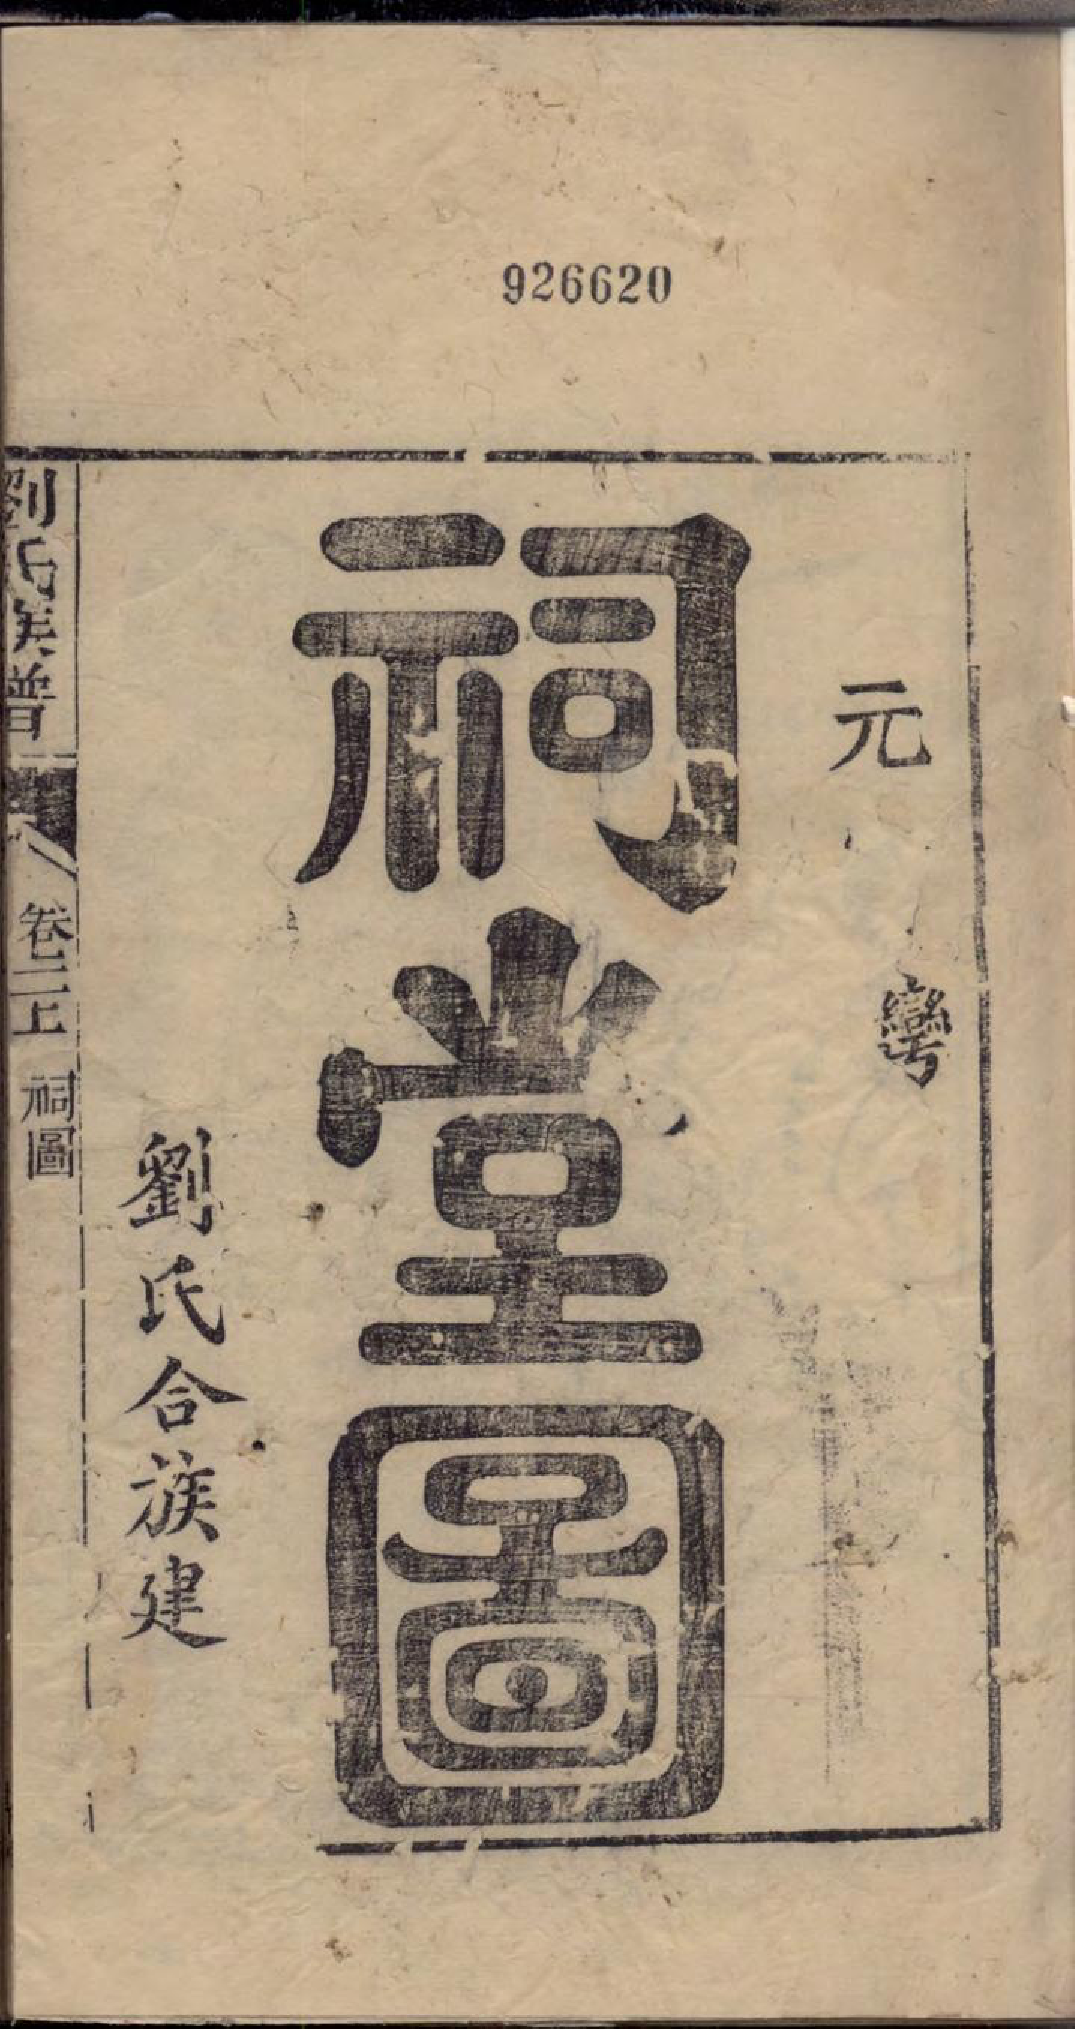 926620
元
彎
祠堂圖
劉氏合族建
劉氏族譜
卷二上 祠圖